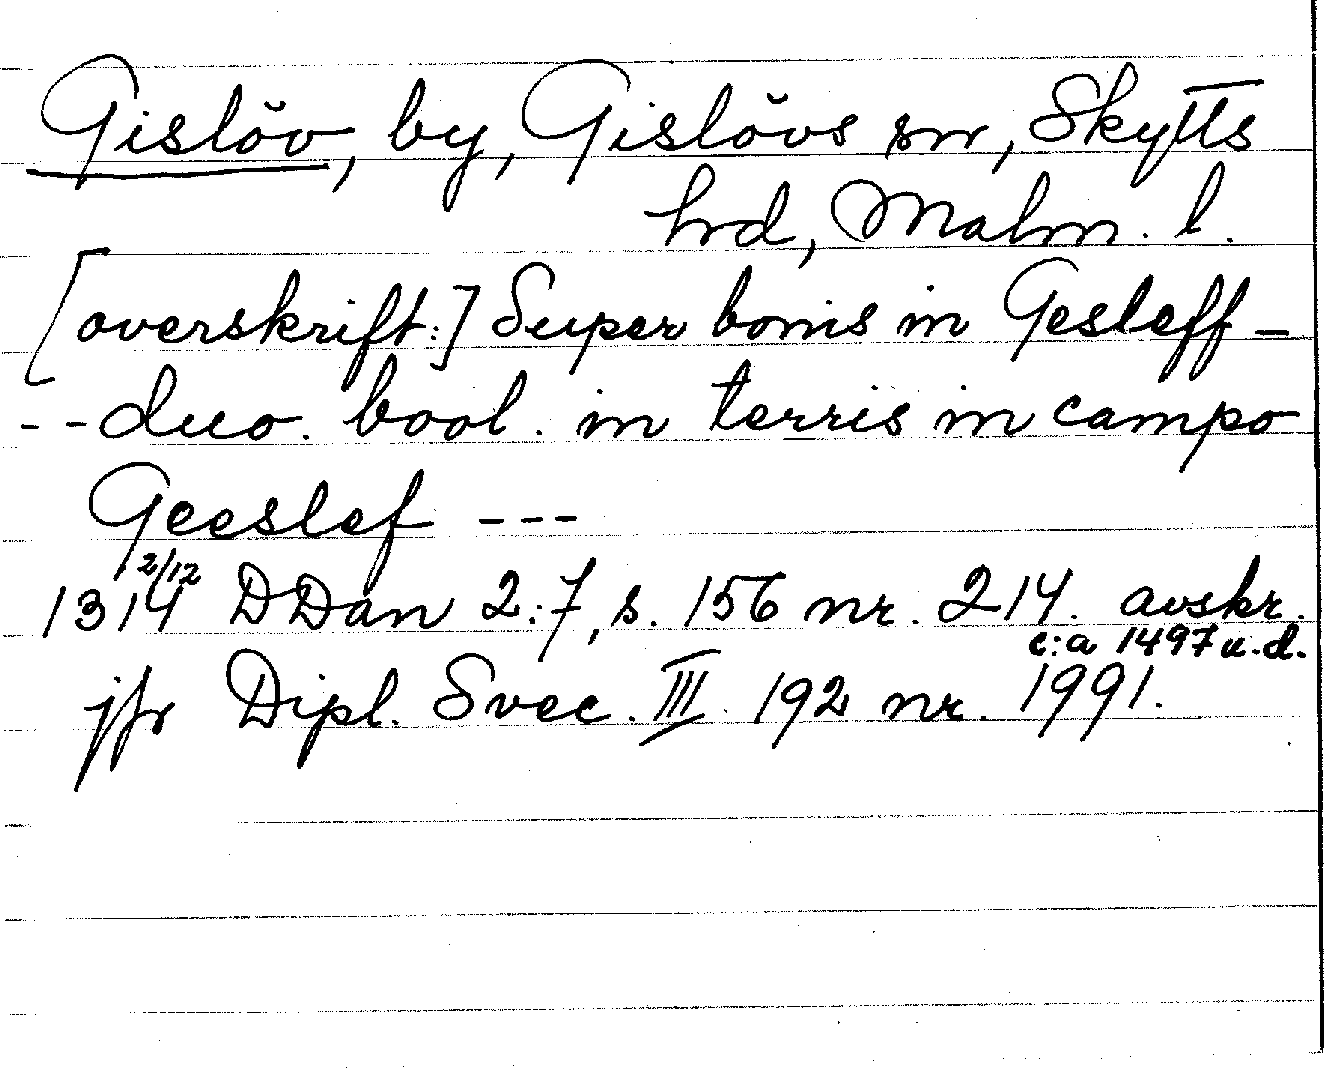 Gislöv, by, Gislövs sn, Skytts
hd, Malm. l.
[overskrift:] Super bonis in Gesleff -
-- duo. bool. in terris in campo
Geeslef ---
1314 2/12 DDan 2:7, s. 156 nr. 214. avskr.
c:a 1497 u.d.
jfr Dipl. Svec. III. 192 nr. 1991.